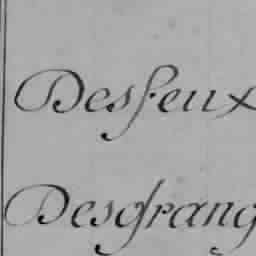 Desfeux
Desgrang